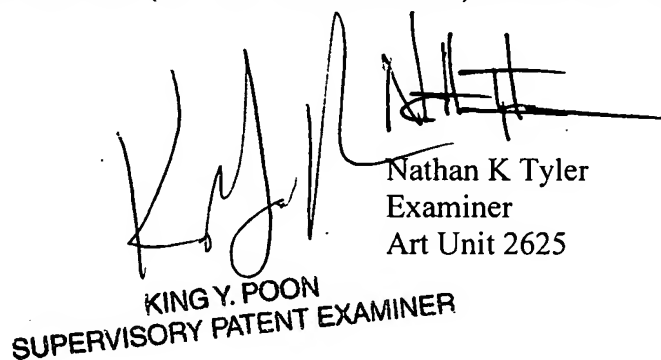 Nathan K Tyler
Examiner
Art Unit 2625
KING Y. POON
SUPERVISORY PATENT EXAMINER